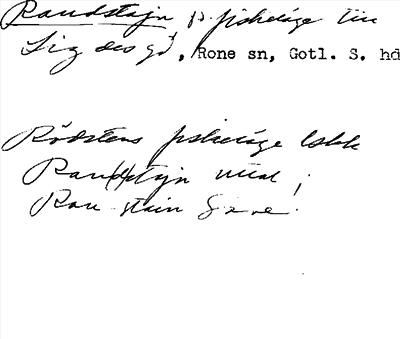 Raudstajn p. fiskeläge till
Ligdes gd, Rone sn, Gotl. S. hd
Rödstens fiskeläge
Rau(d)stajn uttal ;
Rau stain Säve.